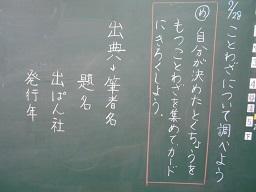 2/28 ことわざについて調べよう
め 自分が決めたとくちょうを
もつことわざを集めてカード
にきろくしよう。
出典→筆者名
題名
出ぱん社
発行年